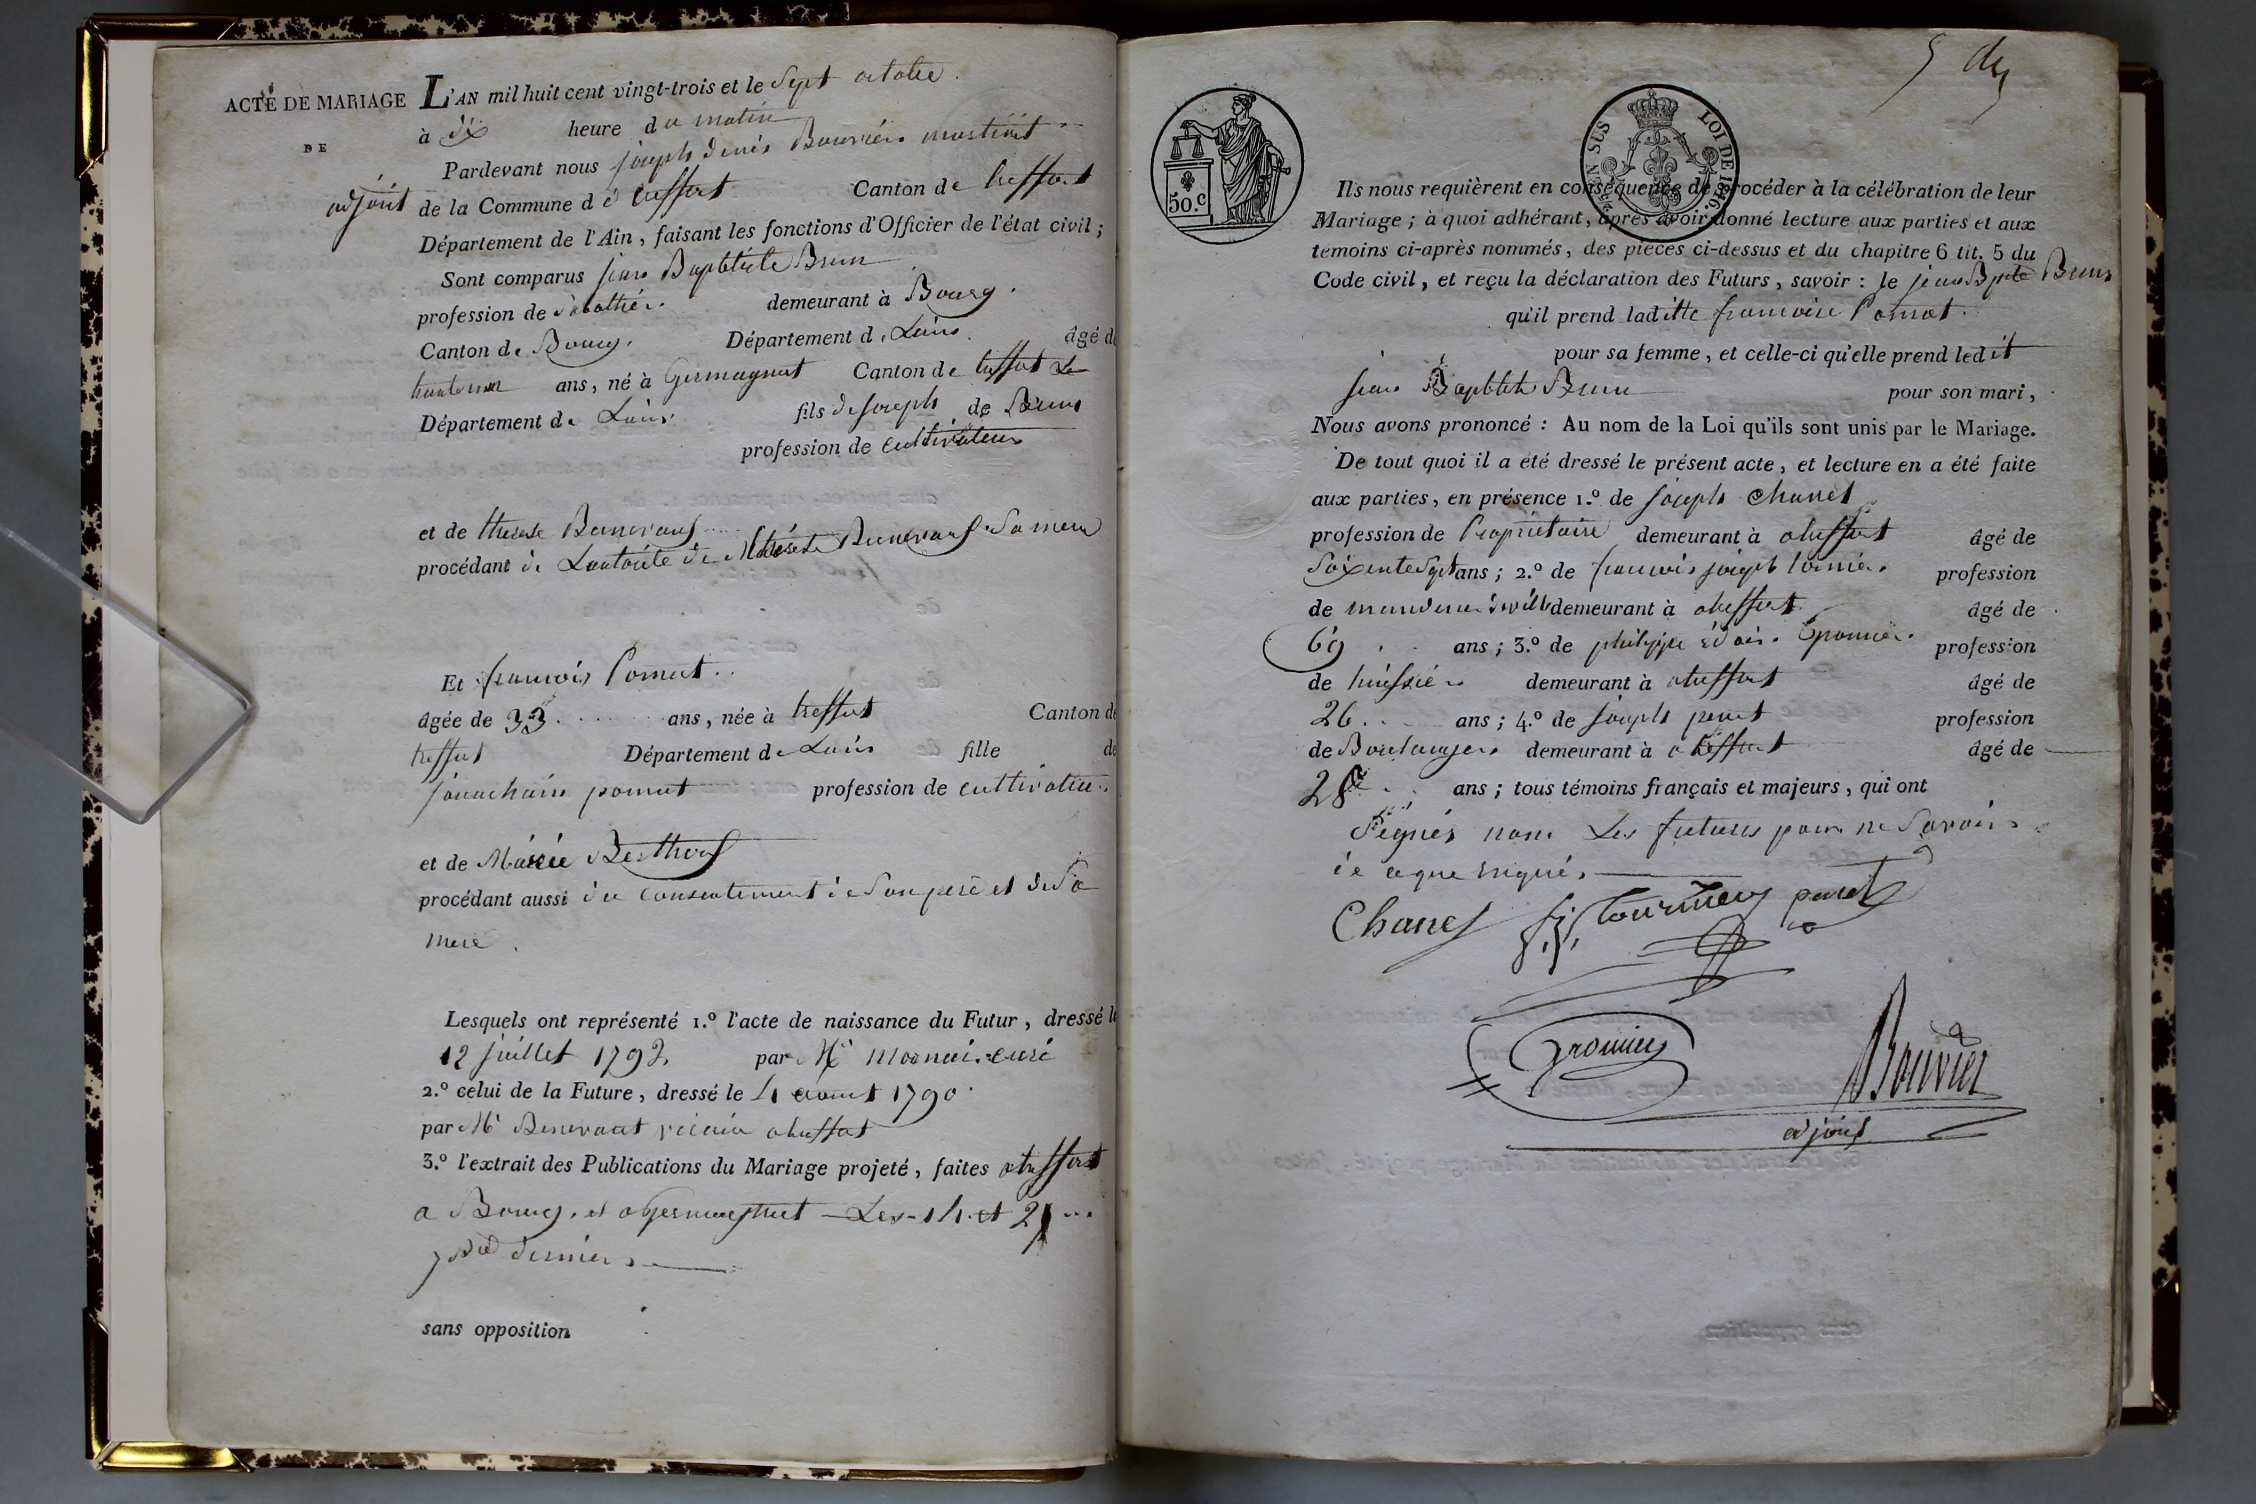 ACTE DE MARIAGE
DE
L'AN mil huit cent vingt-trois et le Sept octobre
à dix heure du matin
Pardevant nous joseph denis Bouvier
adjoint de la Commune de treffort Canton de treffort
Département de l'Ain, faisant les fonctions d'Officier de l'état civil;
Sont comparus jean Baptiste Brun
profession de Sabottier demeurant à Bourg.
Canton de Bourg. Département de Lain âgé de
ans, né à Germagnat Canton de treffort
Département de Lain fils de joseph de Brun
profession de cultivateur
et de therese
procédant de Lautorité de therese Sa mere
Et francois Pomat
âgée de 33 ans, née à treffort Canton de
treffort Département de Lain fille de
jouachain pomat profession de cultivateur
et de Marie
procédant aussi du consentement de Son pere et de Sa
mere.
Lesquels ont représenté 1.º l'acte de naissance du Futur, dressé le
12 juillet 1792, par Mr curé
2.º celui de la Future, dressé le 4 aout 1790
par Mr vicaire a treffort
3.º l'extrait des Publications du Mariage projeté, faites a treffort
a Bourg. et a Germagnat Les 14 et 21
7bre dernier
sans opposition
50.c
LOI DE 1816.
Ils nous requièrent en conséquence de procéder à la célébration de leur
Mariage; à quoi adhérant, après avoir donné lecture aux parties et aux
temoins ci-après nommés, des pièces ci-dessus et du chapitre 6 tit. 5 du
Code civil, et reçu la déclaration des Futurs, savoir: le jean Bpte Brun
qu'il prend laditte francoise Pomat.
pour sa femme, et celle-ci qu'elle prend ledit
jean Baptiste Brun pour son mari,
Nous avons prononcé: Au nom de la Loi qu'ils sont unis par le Mariage.
De tout quoi il a été dressé le présent acte, et lecture en a été faite
aux parties, en présence 1.º de joseph Chanel
profession de Propriétaire demeurant à a treffort âgé de
Soixente Sept ans; 2.º de francois joseph profession
de demeurant à a treffort âgé de
69 ans; 3.º de philippe profession
de huissier demeurant à a treffort âgé de
26 ans; 4.º de joseph perret profession
de Boulanger demeurant à a treffort âgé de
28 ans; tous témoins français et majeurs, qui ont
Signés non Les futures pour ne Savoir
de ce que enquis.
Chanel f. j. tournier perret
Bouvier
adjoint